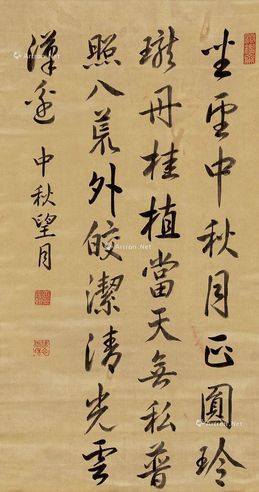 坐望中秋月正圓玲
瓏丹桂植當天無私普
照八荒外皎潔清光雲
漢邊
中秋望月
Artron.Net
Artron.Net
Artron.Net
Artron.Net